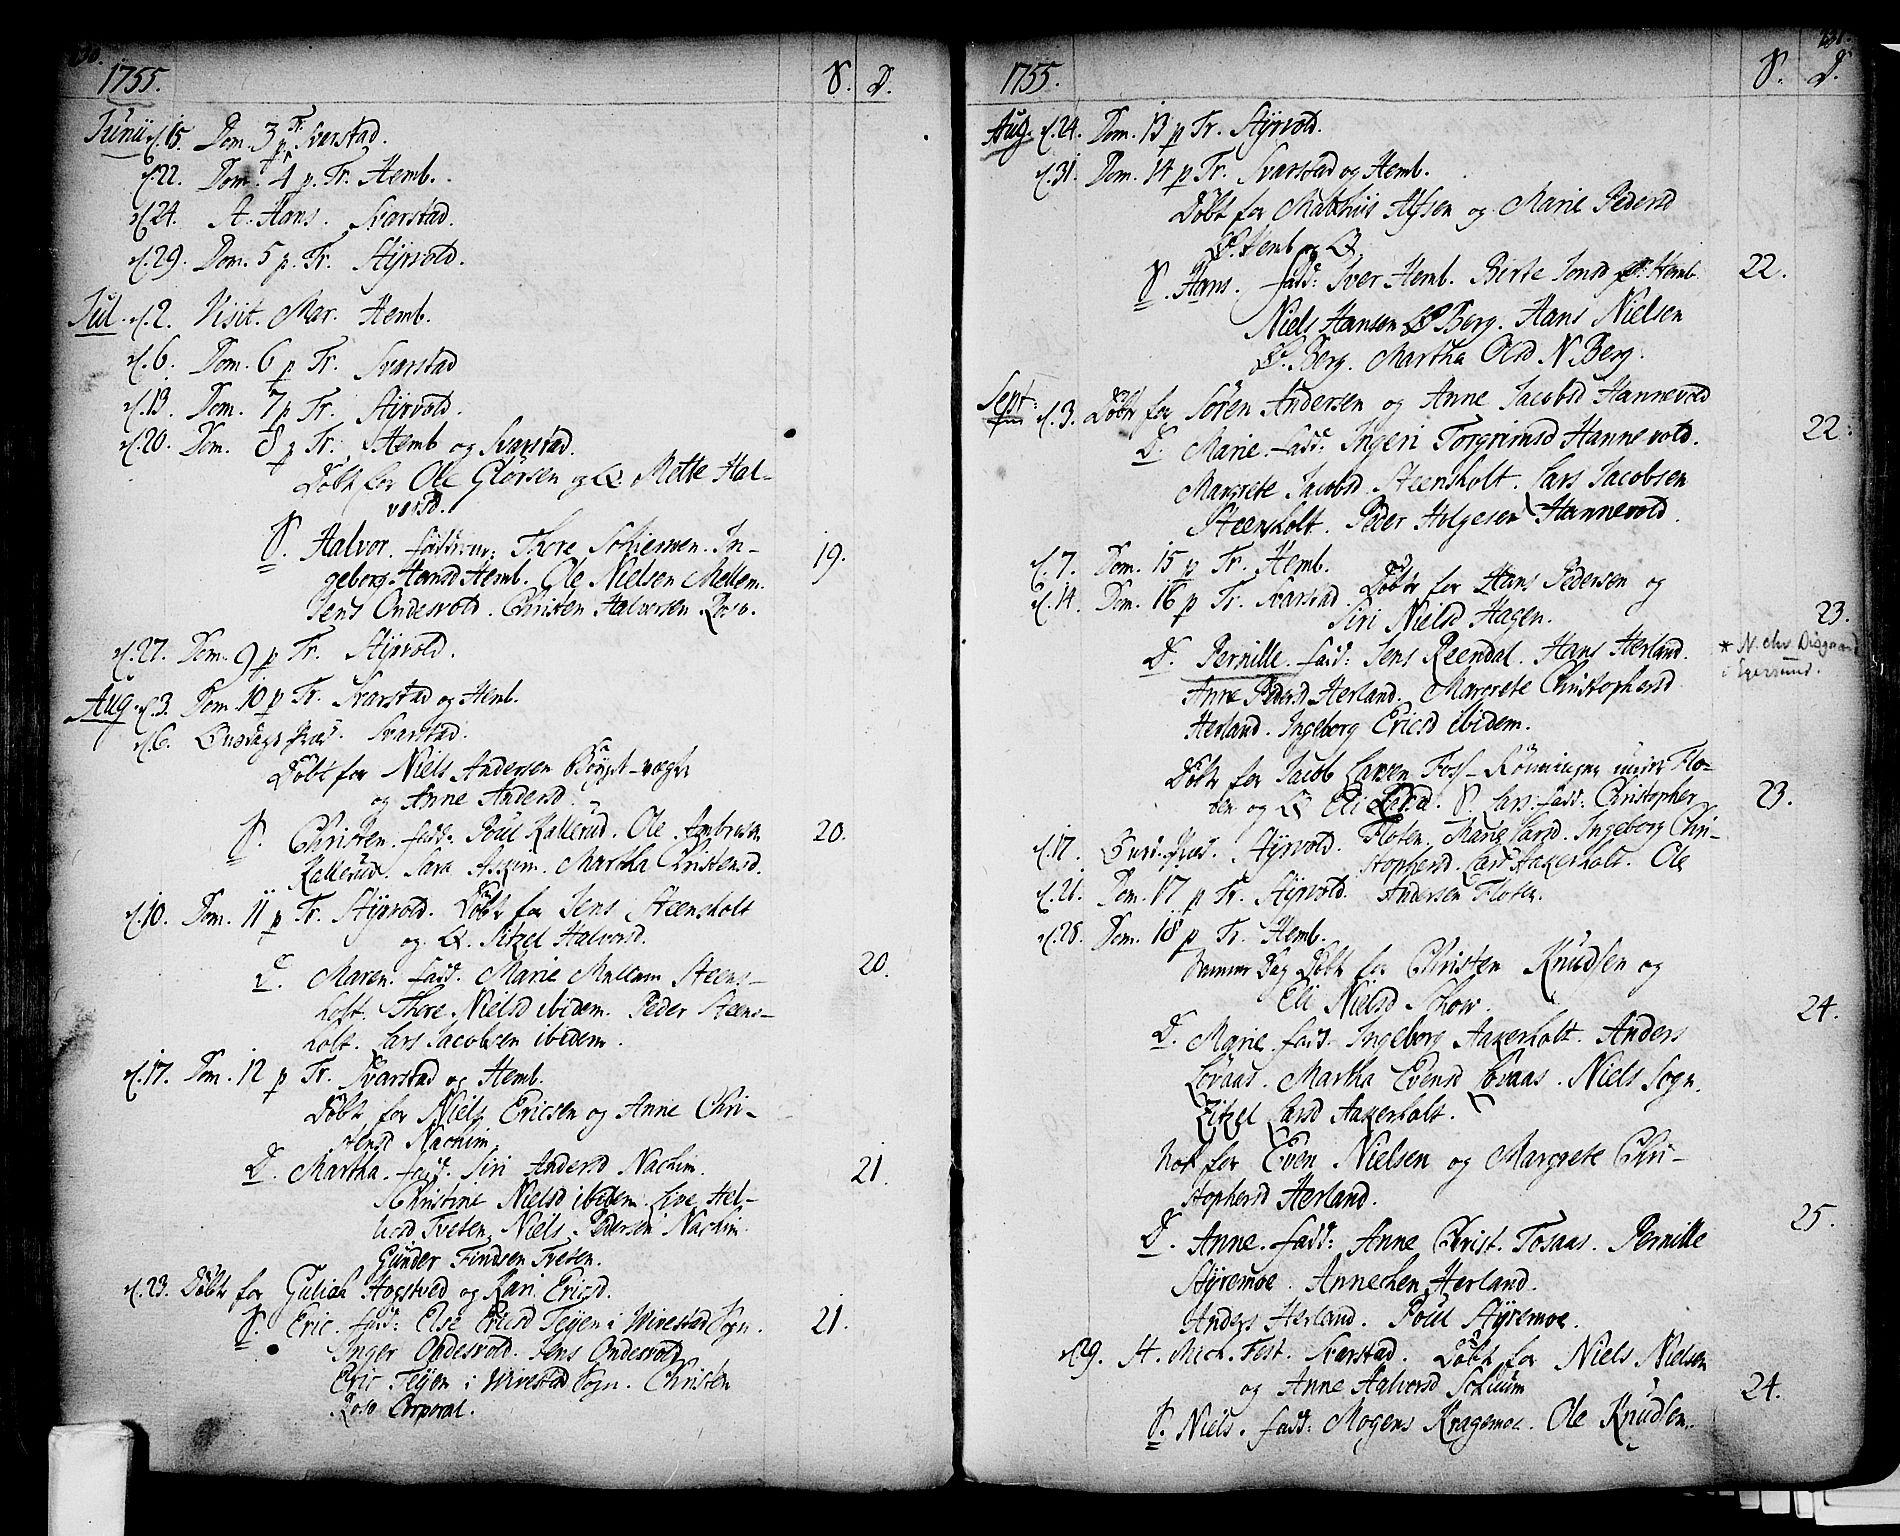 1755. S. D.
Junii d. 15. Dom. 3 p Tr. Svarstad.
d. 22. Dom. 4 p. Tr. Hemb.
d. 24. St. Hans. Svarstad.
d. 29. Dom. 5 p. Tr. Styrvold.
Jul. d. 2. Visit. Mar. Hemb.
d. 6. Dom. 6 p Tr. Svarstad
d. 13. Dom. 7 p Tr. Styrvold.
d. 20. Dom. 8 p Tr. Hemb og Svarstad.
Döbt for Ole Glörsen og Mette Hal-
vorsd.
S. Halvor. Thore In- 19.
geborg Hansd Hemb. Ole Nielsen Mellem.
Jens Ondesvold. Christen Halvorsen Roso.
d. 27. Dom. 9 p Tr. Styrvold.
Aug. d. 3. Dom 10 p Tr. Svarstad og Hemb.
d. 6. Onsdags Præd. Svarstad.
Döbt for Niels Andersen
og Anne Andersd.
S. Christen. fadd: Poul Kallerud. Ole 20.
Kallerud. Sara Askim. Martha Christensd.
d. 10. Dom. 11 p Tr. Styrvold. Döbt for Jens Steensholt
og Sitzel Halvorsd.
D. Maren. fadd. Marie Mellem Steens- 20.
holt. Thore Nielsd ibidem. Peder Steens-
holt. Lars Jacobsen ibidem.
d. 17. Dom. 12 p Tr. Svarstad og Hemb.
Döbt for Niels Ericsen og Anne Chri-
stensd Nachim.
D. Martha. fadd. Siri Andersd Nachim. 21.
Christine Nielsd ibidem. Live Hel-
Tveten. Niels Pedersen Nachim.
Gunder Findsen Tveten.
d. 23. Döbt for Guliak Hogstved og Kari Ericsd.
S. Eric. fadd: Else Ericsd Teyen i Sogn. 21.
Inger Ondesvold. Jens Ondesvold
Eric Teyen i Sogn. Christen
Roso Corporal.
1755. S. D.
Aug. d. 24. Dom. 13 p Tr. Styrvold.
d. 31. Dom. 14 p Tr. Svarstad og Hemb.
Döbt for Matthis Alfsen og Marie Pedersd
Hemb og
S. Hans. fadd: Iver Hemb. Birte Jonsd Hemb 22.
Niels Hansen Berg. Hans Nielsen
Berg. Martha Olsd N. Berg.
Sept: d. 3. Döbt for Sören Andersen og Anne Jacobsd Hannevold
D. Marie. fadd: Ingeri Torgrimsd Hannevold. 22.
Margrete Jacobsd Steensholt. Lars Jacobsen
Steensholt. Peder Helgesen Hannevold.
d. 7. Dom. 15 p Tr. Hemb.
d. 14. Dom. 16 p Tr. Svarstad. Döbt for Hans Pedersen og
Siri Nielsd Hagen. 23.
D. Pernille. fadd: Jens Reendal. Hans Herland.
Anne Pedersd Herland. Margrete Christophersd
Herland. Ingeborg Ericsd ibidem.
Döbt for Jacob Larsen Foss-Rönningen under Flo-
ten og Eli S. Lars. fadd: Christopher 23.
d. 17. Onsd. Præd. Styrvold. Floten. Marie Larsd. Ingeborg Chri-
stophersd. Lars Aakerholt. Ole
d. 21. Dom. 17 p Tr. Styrvold. Andersen Floten.
d. 28. Dom. 18 p Tr. Hemb.
Samme Dag Döbt for Christen Knudsen og
Eli Nielsd Schow.
D. Marie. fadd. Ingeborg Aakerholt. Anders 24.
Lövaas. Martha Evensd Lövaas. Niels Sogn.
Zitzel Larsd Aakerholt.
Nok for Even Nielsen og Margrete Chri-
stophersd Herland.
D. Anne. fadd: Anne Christ. Tosaas. Pernille 25.
Styremoe. Annechen Herland.
Anders Herland. Poul Styremoe.
d. 29. St. Mich. Fest. Svarstad. Döbt for Niels Nielsen
og Anne Halvorsd
S. Niels. fadd: Mogens Kragemoe. Ole Knudsen. 24.